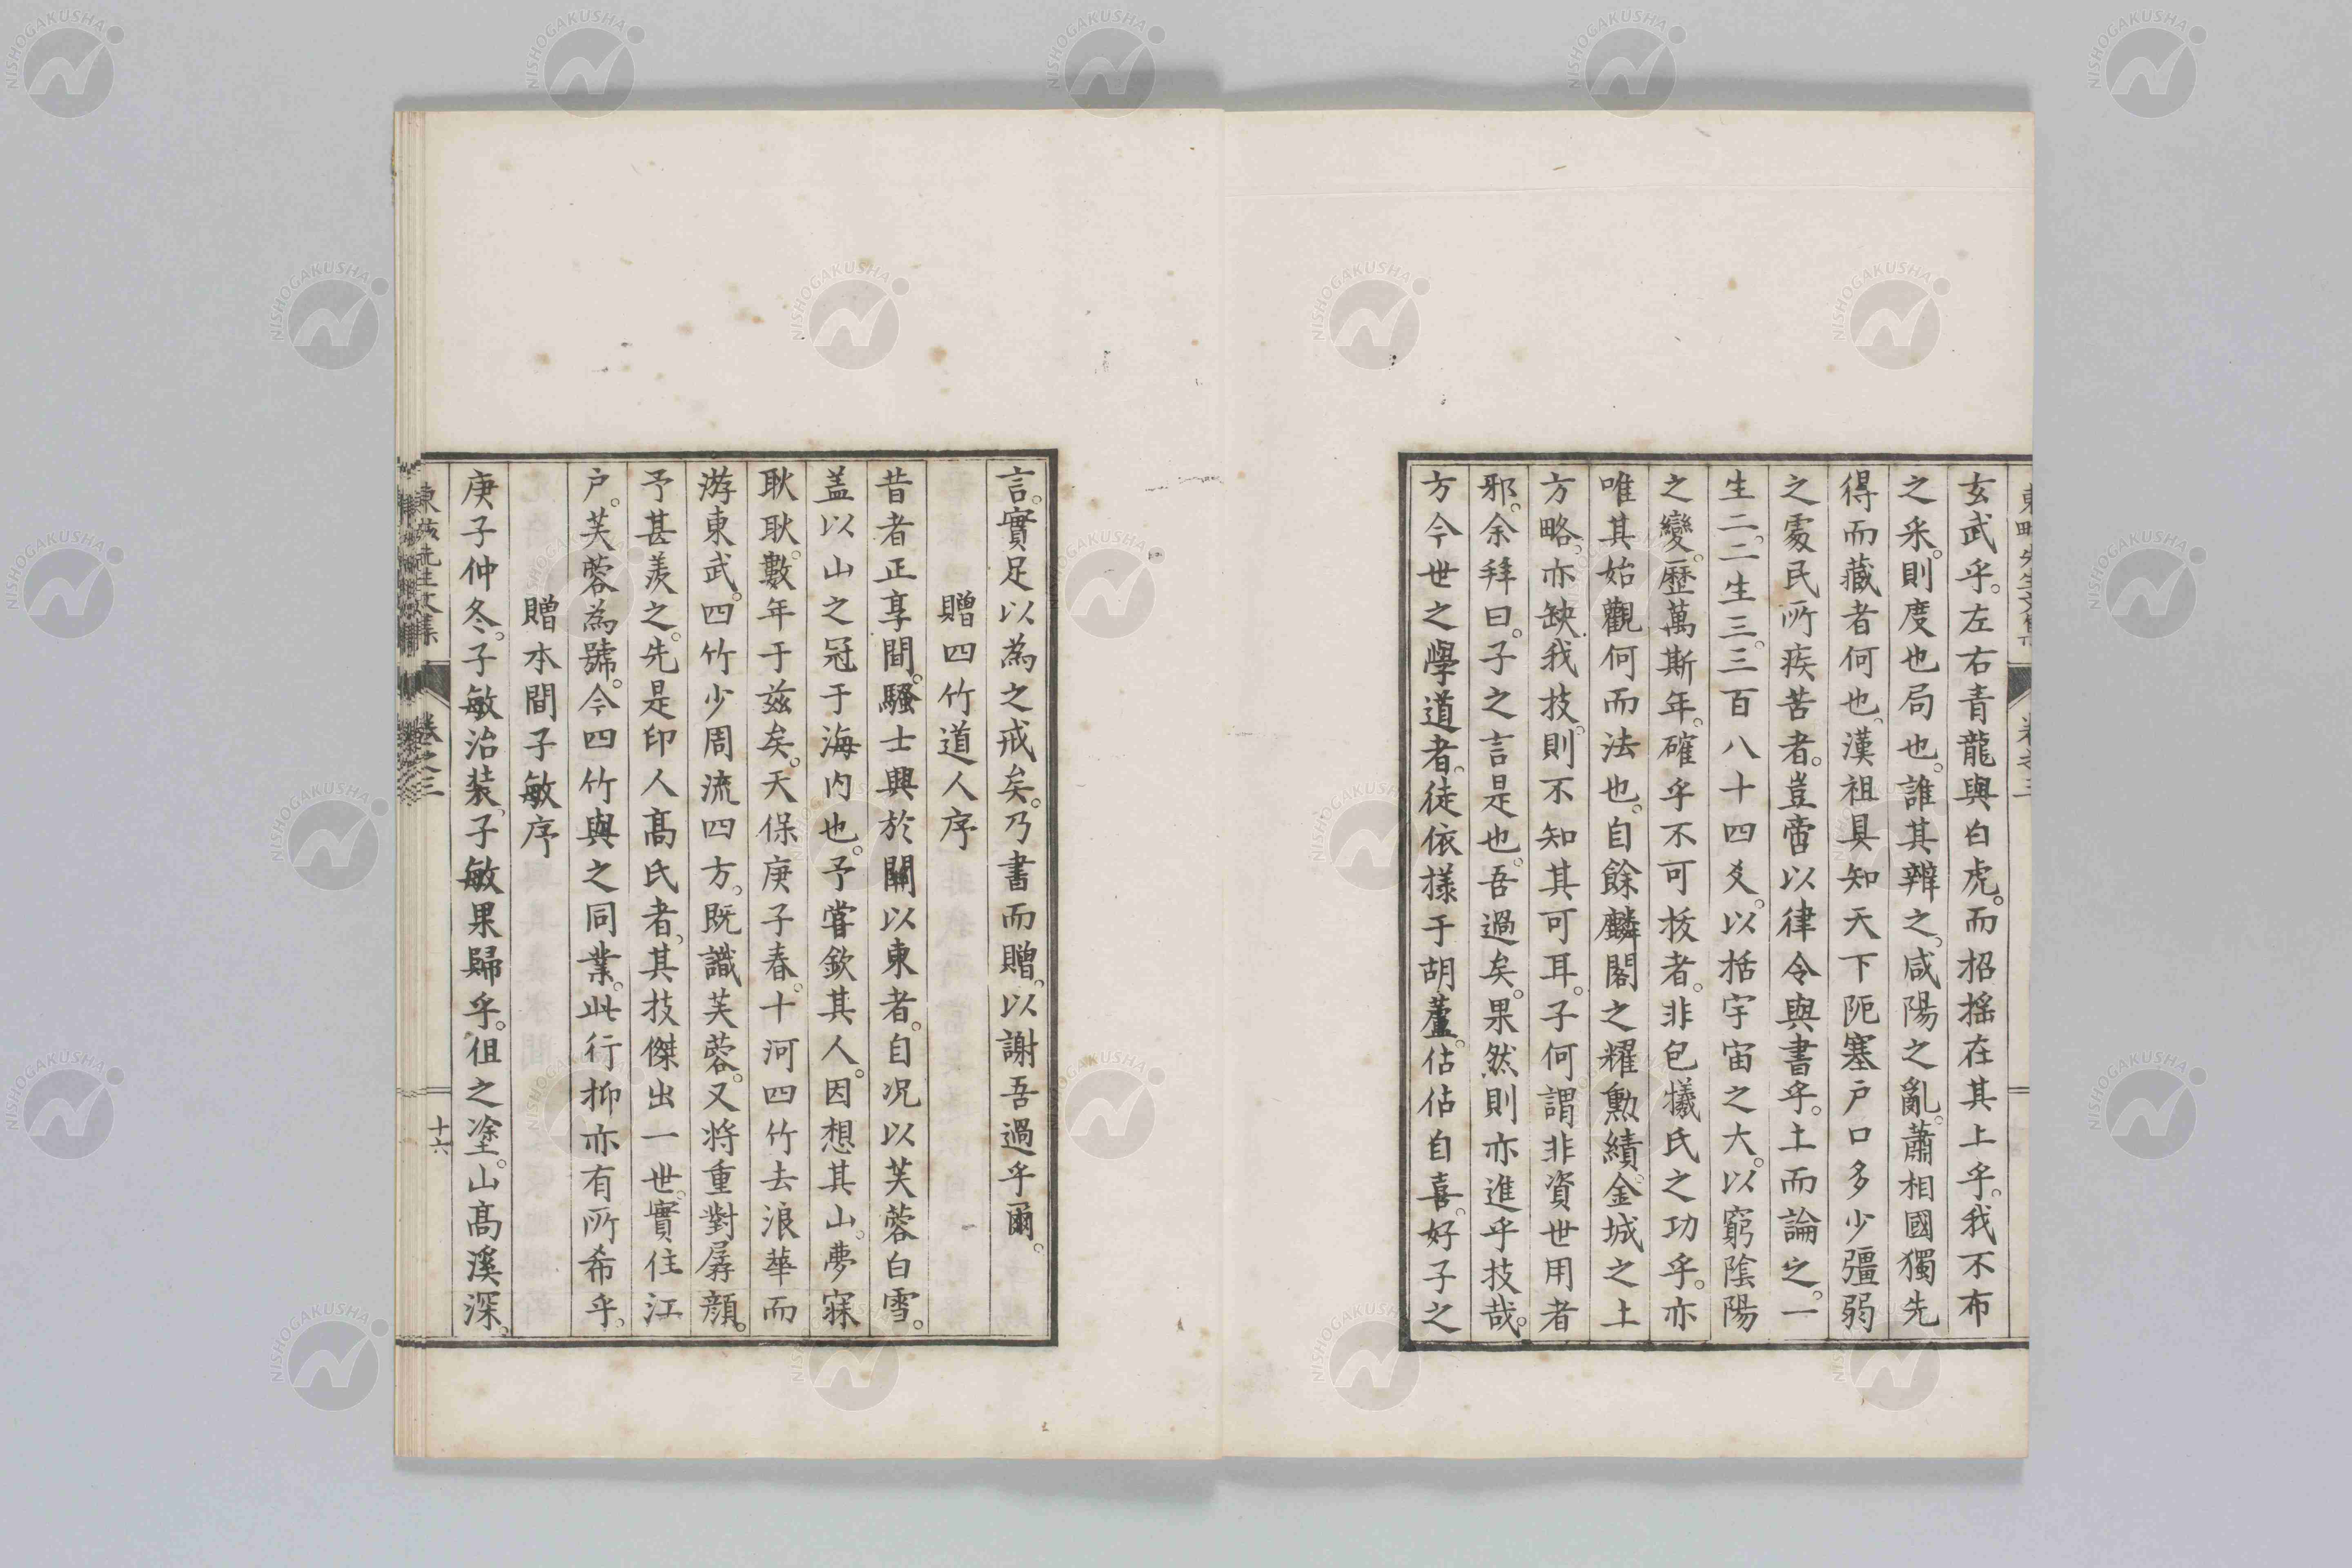 玄武乎。左右青龍與白虎。而招搖在其上乎。我不布
之采。則度也局也。誰其辨之。咸陽之亂。蕭相國獨先
得而藏者何也。漢祖具知天下阨塞戶口多少彊弱
之處民所疾苦者。豈啻以律令與書乎。土而論之。一
生二。二生三。三百八十四爻。以括宇宙之大。以窮陰陽
之變。歷萬斯年。確乎不可拔者。非包犧氏之功乎。亦
唯其始觀何而法也。自餘麟閣之耀勳績。金城之土
方略。亦缺我技。則不知其可耳。子何謂非資世用者
邪。余拜曰。子之言是也。吾過矣。果然則亦進乎技哉。
方今世之學道者。徒依樣于胡蘆。估估自喜。好子之
言。實足以為之戒矣。乃書而贈。以謝吾過乎爾。
贈四竹道人序
昔者正享間。騷士興於關以東者。自況以芙蓉白雪。
蓋以山之冠于海內也。予嘗欽其人。因想其山。夢寐
耿耿。數年于茲矣。天保庚子春。十河四竹去浪華而
游東武。四竹少周流四方。既識芙蓉。又將重對孱顏。
予甚羨之。先是印人高氏者。其技傑出一世。實住江
戶。芙蓉為號。今四竹與之同業。此行抑亦有所希乎。
贈本間子敏序
庚子仲冬。子敏治裝。子敏果歸乎。徂之塗。山高溪深。
卷之三
十六
NISHOGAKUSHA